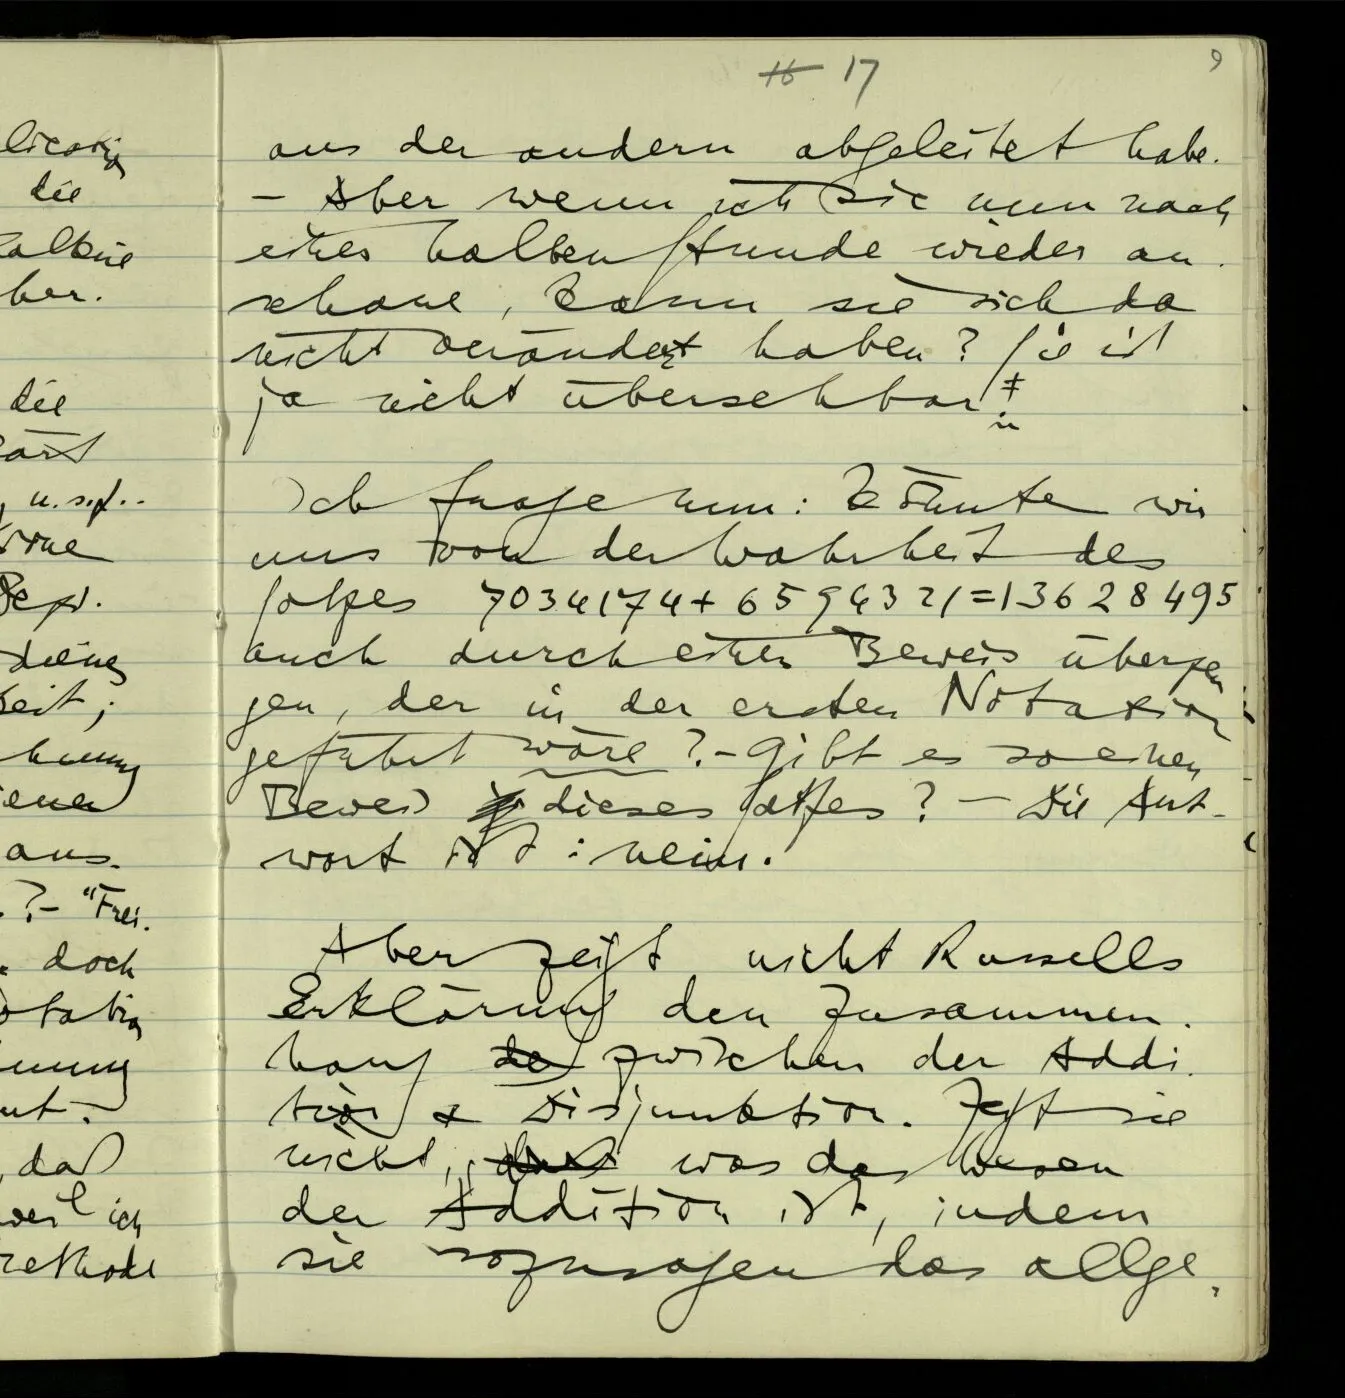 lication
die
ber.
die
u.s.f..
Bew.
dieng
keit;
aus.
?- "Frei.
doch
otation
, daß
weil ich
Methode
16 17
9
aus der andern abgeleitet habe.
– Aber wenn ich sie nun nach
einer halben Stunde wieder an-
schaue, kann sie sich da
nicht verändert haben? Sie ist
ja nicht übersehbar.
Ich frage nun: Könnten wir
uns von der Wahrheit des
Satzes 7034174 + 6594321 = 13628495
auch durch einen Beweis überzeu
gen, der in der ersten Notation
geführt wäre? – Gibt es so einen
Beweis dieses Satzes? – Die Ant-
wort ist: nein.
Aber zeigt nicht Russells
Erklärung den Zusammen-
hang de zwischen der Addi-
tion & Disjunktion. Zeigt sie
nicht, was das Wesen
der Addition ist, indem
sie sozusagen das allge-